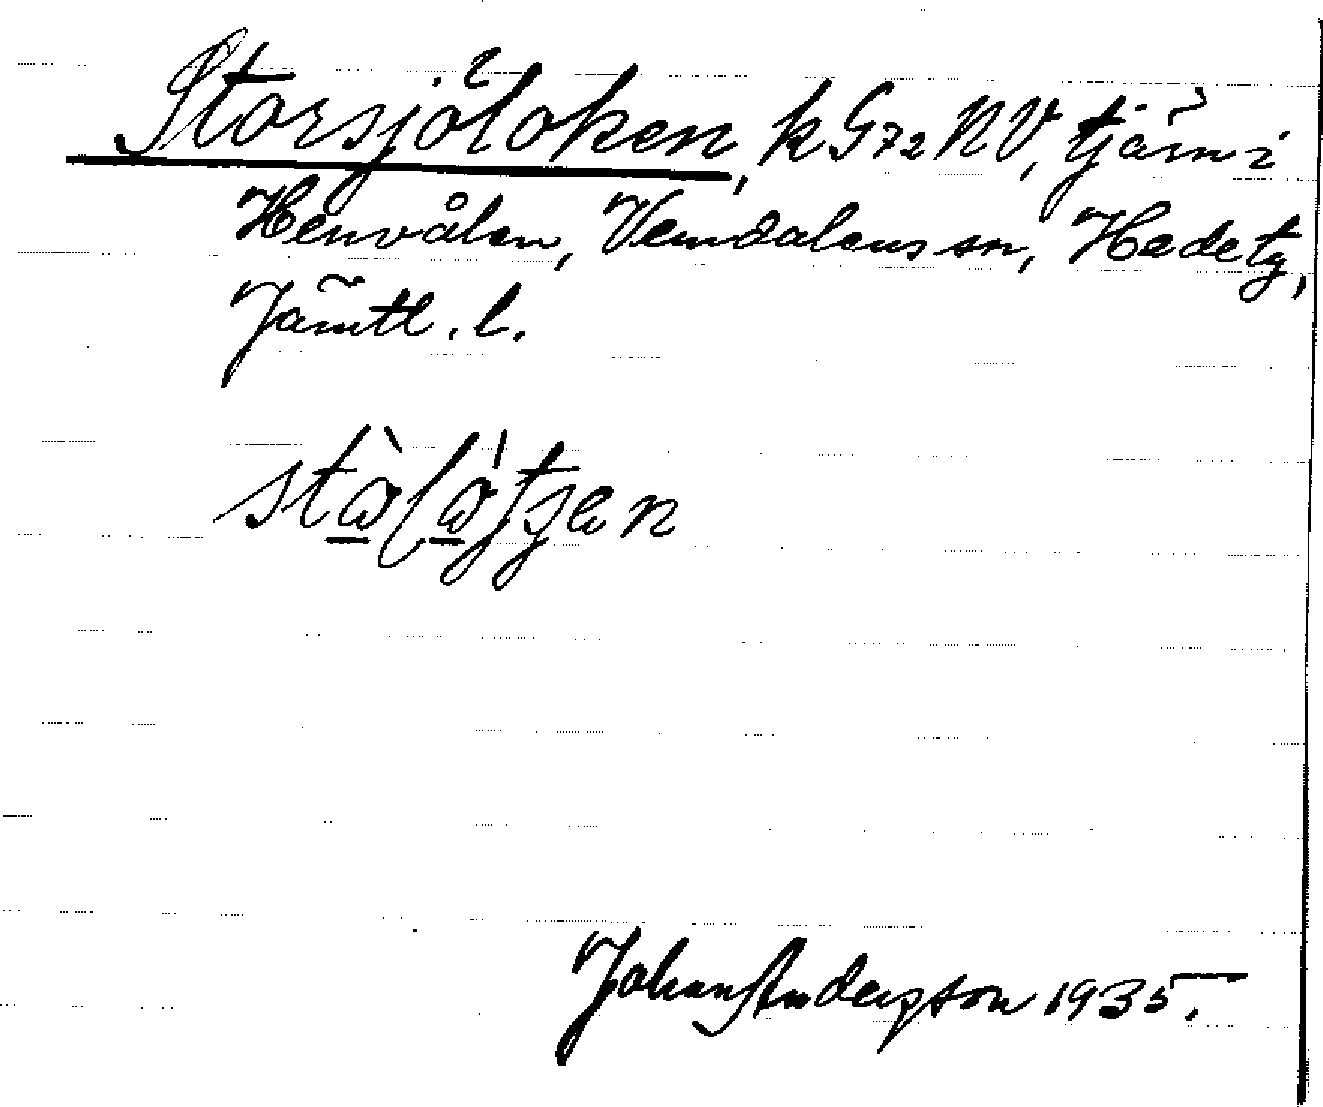 Storsjöloken, k G72 NV, tjärn i
Henvålen, Vemdalens sn, Hede tg,
Jämtl. l.
Johan Anderson 1935.